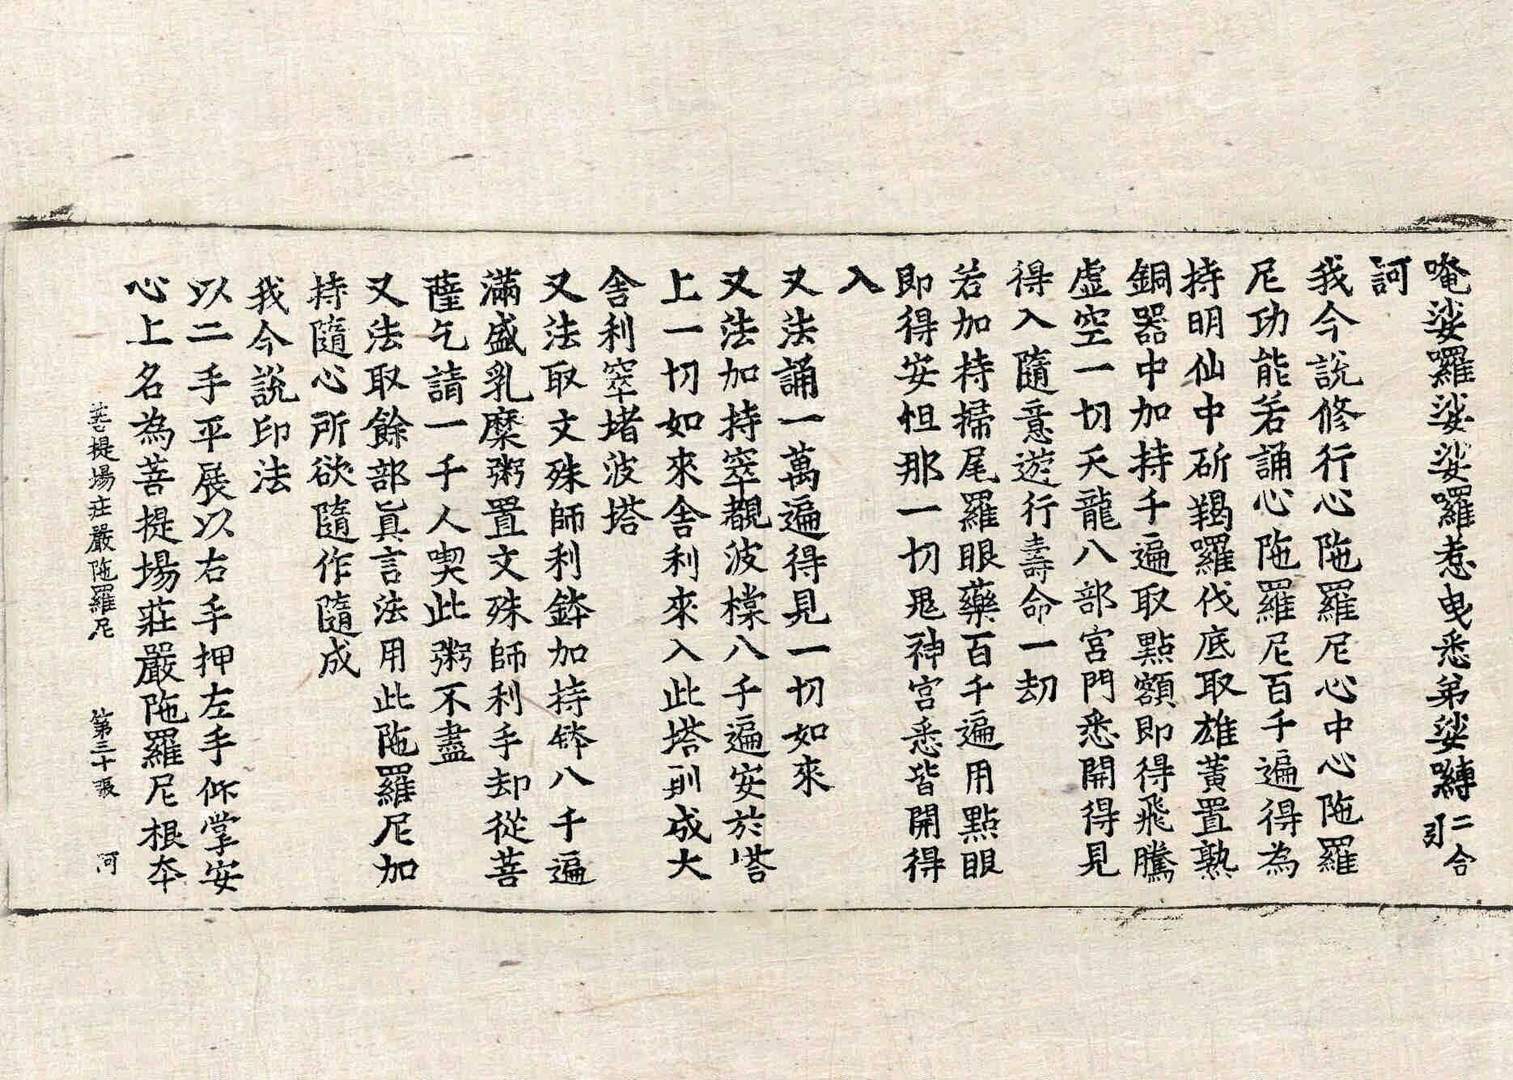 唵娑囉娑娑囉惹曳悉弟娑嚩二合引
訶
我今說修行心陁羅尼心中心陁羅
尼功能若誦心陁羅尼百千遍得為
持明仙中斫羯囉伐底取雄黃置熟
銅器中加持千遍取點額即得飛騰
虛空一切天龍八部宮門悉開得見
得入隨意遊行壽命一劫
若加持掃尾羅眼藥百千遍用點眼
即得安怛那一切鬼神宮悉皆開得
入
又法誦一萬遍得見一切如來
又法加持窣覩波檪八千遍安於塔
上一切如來舍利來入此塔則成大
舍利窣堵波塔
又法取文殊師利鉢加持鉢八千遍
滿盛乳糜粥置文殊師利手却從菩
薩乞請一千人喫此粥不盡
又法取餘部真言法用此陁羅尼加
持隨心所欲隨作隨成
我今說印法
以二手平展以右手押左手仰掌安
心上名為菩提場莊嚴陁羅尼根本
菩提場莊嚴陁羅尼 第三十張 河